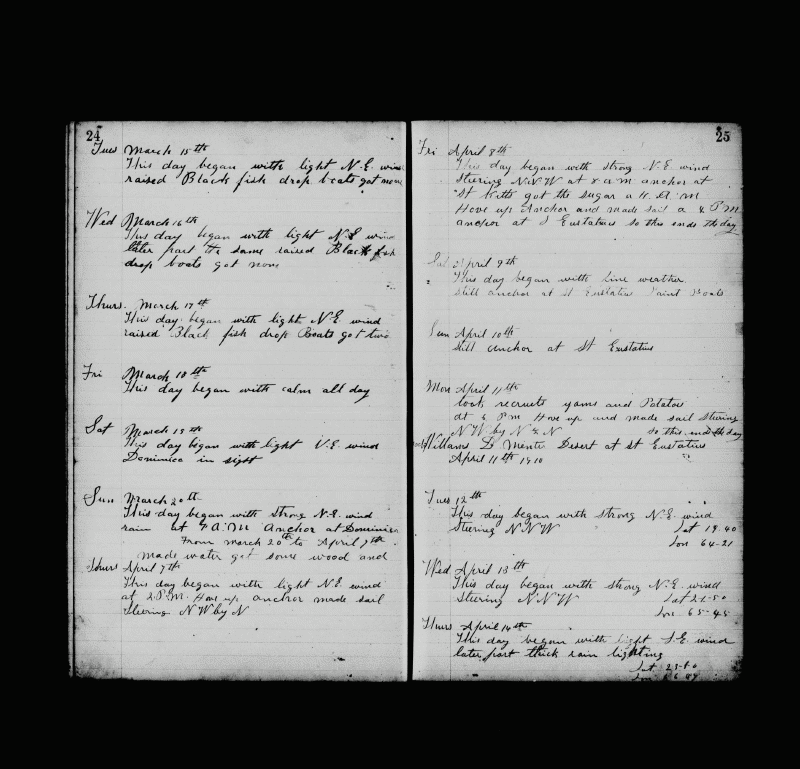 24
Tues March 15th
This day began with light N.E. wind
raised Black fish drop boats got none
Wed March 16th
This day began with light N.E wind
later part the same raised Black fish
drop boats got none
Thurs. March 17th
This day began with light N.E. wind
raised Black fish drop Boats got two
Fri March 18th
This day began with calm all day
Sat March 19th
This day began with light N.E. wind
Dominica in sight
Sun March 20th
This day began with strong N.E. wind
rain at A.M Anchor at Dominica
From march 20th to April 7th
made water got some wood and
Thurs April 7th
This day began with light N.E. wind
at 2.P.M. Hove up anchor made sail
Steering N W by N
25
Fri April 8th
This day began with strong N.E. wind
Steering N.N.W at 8 a.m anchor at
St Kitts got the sugar a 11. A. M
Hove up Anchor and made sail a 4 P M
anchor at S Eustatius so this ends the day
Sat April 9th
This day began with fine weather
still anchor at St Eustatius Paint Boats
Sun April 10th
still anchor at St Eustatius
Mon April 11th
took recruits yams and Potatoes
at 6 P m Hove up and made sail Steering
N W by N & N so this ends the day
Willams D Mente Desert at St Eustatius
April 11th 1910
Tues 12th
This day began with strong N.E. wind
Steering N N W Lat 19-40
Lon 64-21
Wed April 13th
This day began with strong N.E. wind
Steering N.N W Lat 21-50
Lon 65-45
Thurs April 14th
This day began with light S.E. wind
later part thick rain lighting
Lat 23-50
Lon